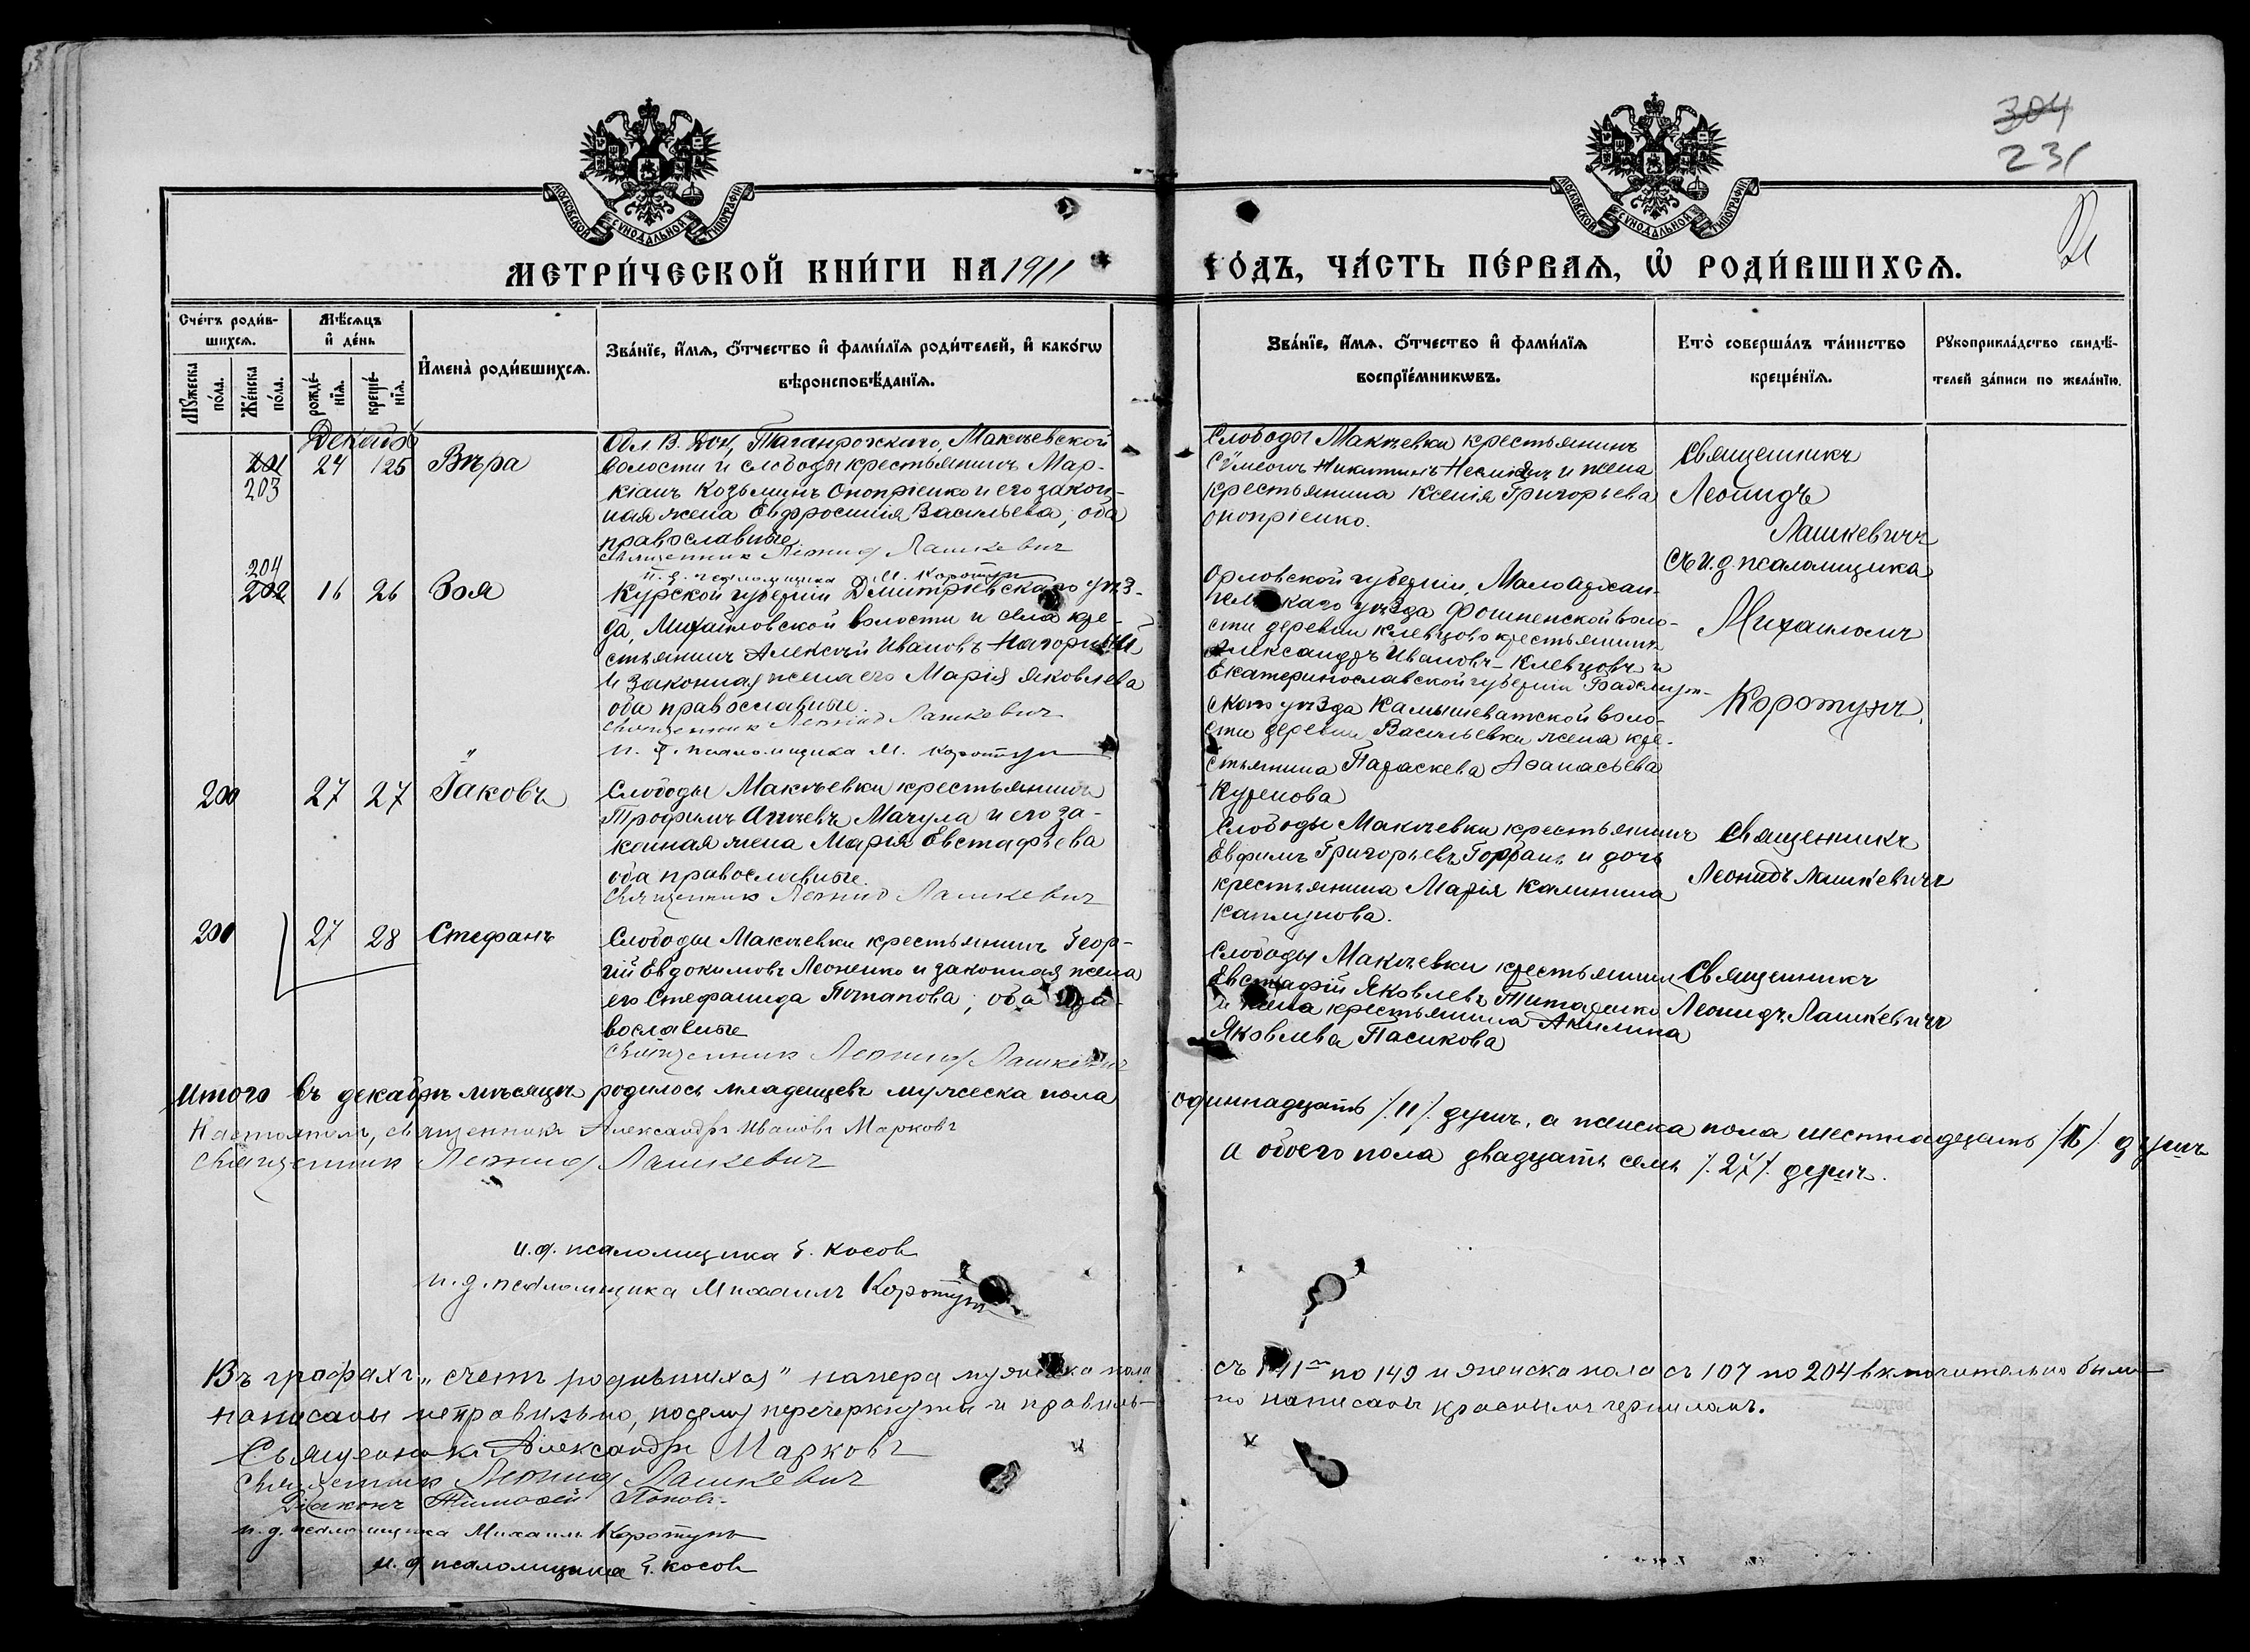 304
231
МОСКОВСКОЙ СѴНОДАЛЬНОЙ ТИПОГРАФІИ
МОСКОВСКОЙ СѴНОДАЛЬНОЙ ТИПОГРАФІИ
МЕТРИ́ЧЕСКОЙ КНИ́ГИ НА 1911 ГО́ДЪ, ЧА́СТЬ ПЕ́РВАѦ, Ѽ РОДИ́ВШИХСѦ.
Сче́тъ роди́в-
шихсѧ.
Мѣ́сѧцъ
и҆ де́нь
Мꙋ́жеска
по́ла.
Же́нска
по́ла.
рожде́-
нїѧ.
креще́-
нїѧ.
И҆мена̀ роди́вшихсѧ.
Зва́нїе, и҆́мѧ, ѻ҆́тчество и҆ фами́лїѧ роди́телей, и҆ како́гѡ
вѣроисповѣ́данїѧ.
Зва́нїе, и҆́мѧ, ѻ҆́тчество и҆ фами́лїѧ
воспрїе́мникѡвъ.
Кто̀ соверша́лъ та́инство
креще́нїѧ.
Рꙋкоприкла́дство свидѣ́-
телей за́писи по жела́нїю.
Декабрь
201
203
24 125 Вѣра
Обл. В. Дон, Таганрогскаго, Макѣевской
волости и слободы крестьянинъ Мар-
кіанъ Козьминъ Оноприенко и его закон-
ная жена Евфросинія Васильева, оба
православные
Священник Леонид Лашкевич
и. д. псаломщика М. Коротун
Слободы Макѣевки крестьянинъ
Сѵмеонъ Никитинъ и жена
крестьянина Ксенія Григорьева
Оноприенко.
Священникъ
Леонидъ
Лашкевичъ
съ и. д. псаломщика
Михаиломъ
Коротунъ
204
202
16 26 Зоя
Курской губерніи Дмитріевскаго уѣз-
да, Михайловской волости и села кре-
стьянинъ Алексѣй Ивановъ Нагорный
и законная жена его Марія Яковлева
оба православные.
Священник Леонид Лашкевич
и. д. псаломщика М. Коротун
Орловской губерніи, Малоархан-
гельскаго уѣзда воло-
сти деревни Клевцово крестьянинъ
Александръ Ивановъ Клевцовъ и
Екатеринославской губерніи Бахмут-
скаго уѣзда Камышеватской воло-
сти деревни Васильевки жена кре-
стьянина Параскева Аѳанасьева
200 27 27 Іаковъ
Слободы Макѣевки крестьянинъ
Трофимъ Мачула и его за-
конная жена Марія Евстафьева
оба православные.
Священник Леонид Лашкевич
Слободы Макѣевки крестьянинъ
Евфимъ Григорьевъ Горбань и дочь
крестьянина Марія Калинина
Каплунова.
Священникъ
Леонидъ Лашкевичъ
201 27 28 Стефанъ
Слободы Макѣевки крестьянинъ Геор-
гій Евдокимовъ Леоненко и законная жена
его Стефанида Потапова, оба пра-
вославные
Священник Леонид Лашкевич
Слободы Макѣевки крестьянинъ
Евстафій Яковлевъ Титаренко
и жена крестьянина Акилина
Яковлева Пасикова
Священникъ
Леонидъ Лашкевичъ
Итого въ декабрѣ мѣсяцѣ родилось младенцевъ мужеска пола одиннадцать /.11/. душъ, а женска пола шестнадцать /16/. душъ
а обоего пола двадцать семь /.27/. душъ.
Настоятель, священникъ Александръ Ивановъ Марковъ
Священник Леонид Лашкевич
и. д. псаломщика Г. Косов
и. д. псаломщика Михаилъ Коротунъ
Въ графахъ „счетъ родившихся" номера мужеска пола съ 141 по 149 и женска пола съ 107 по 204 включительно были
написаны неправильно, посему перечеркнуты и правиль-
но написаны красными чернилами.
Священникъ Александръ Марковъ
Священник Леонид Лашкевич
Діаконъ Тимоѳей Попов
и. д. псаломщика Михаилъ Коротунъ
и. д. псаломщика Г. Косов